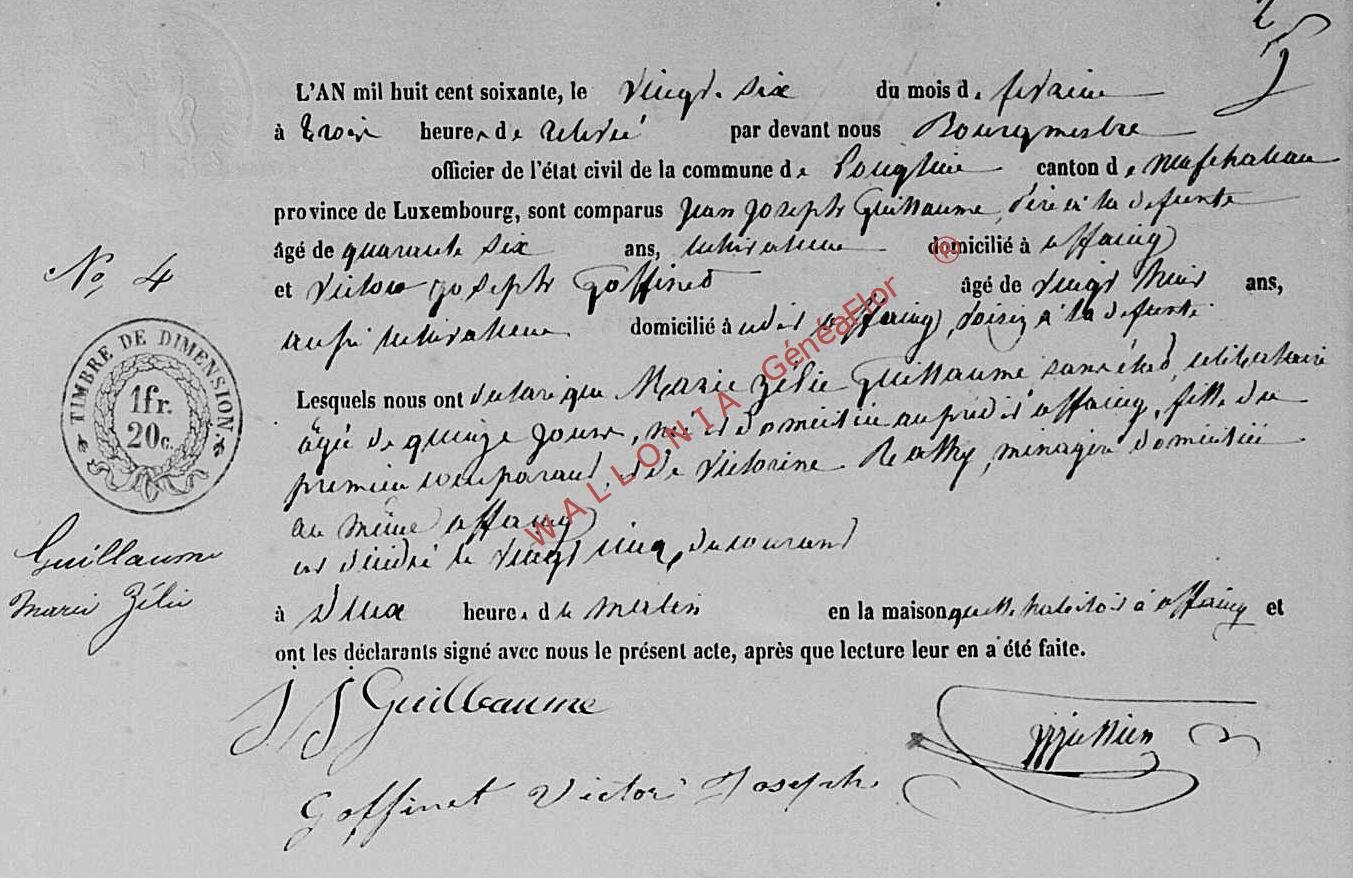 L'AN mil huit cent soixante, le vingt six du mois de fevrier
à trois heures de relevée par devant nous Bourgmestre
officier de l'état civil de la commune de canton de Neufchateau
province de Luxembourg, sont comparus Jean Joseph Guillaume, père à la defunte
âgé de quarante six ans, cultivateur domicilié à Offaing
No, 4
et Victor Joseph Goffinet âgé de vingt ans,
aussi cultivateur domicilié à Offaing, voisin à la defunte
Lesquels nous ont declaré que Marie Zélie Guillaume, sans état, celibataire
âgée de quinze jours, née et domiciliée au predit Offaing, fille du
premier comparant, et de Victorine Reathy, menagère domiciliée
au même Offaing
est décédée le vingt cinq, du courant
à deux heures du matin en la maison qu'elle habitait à Offaing et
ont les déclarants signé avec nous le présent acte, après que lecture leur en a été faite.
TIMBRE DE DIMENSION
1fr.
20c.
Guillaume
Marie Zélie
J J Guillaume
Goffinet Victor Joseph
WALLONIA GénéaFlor ®